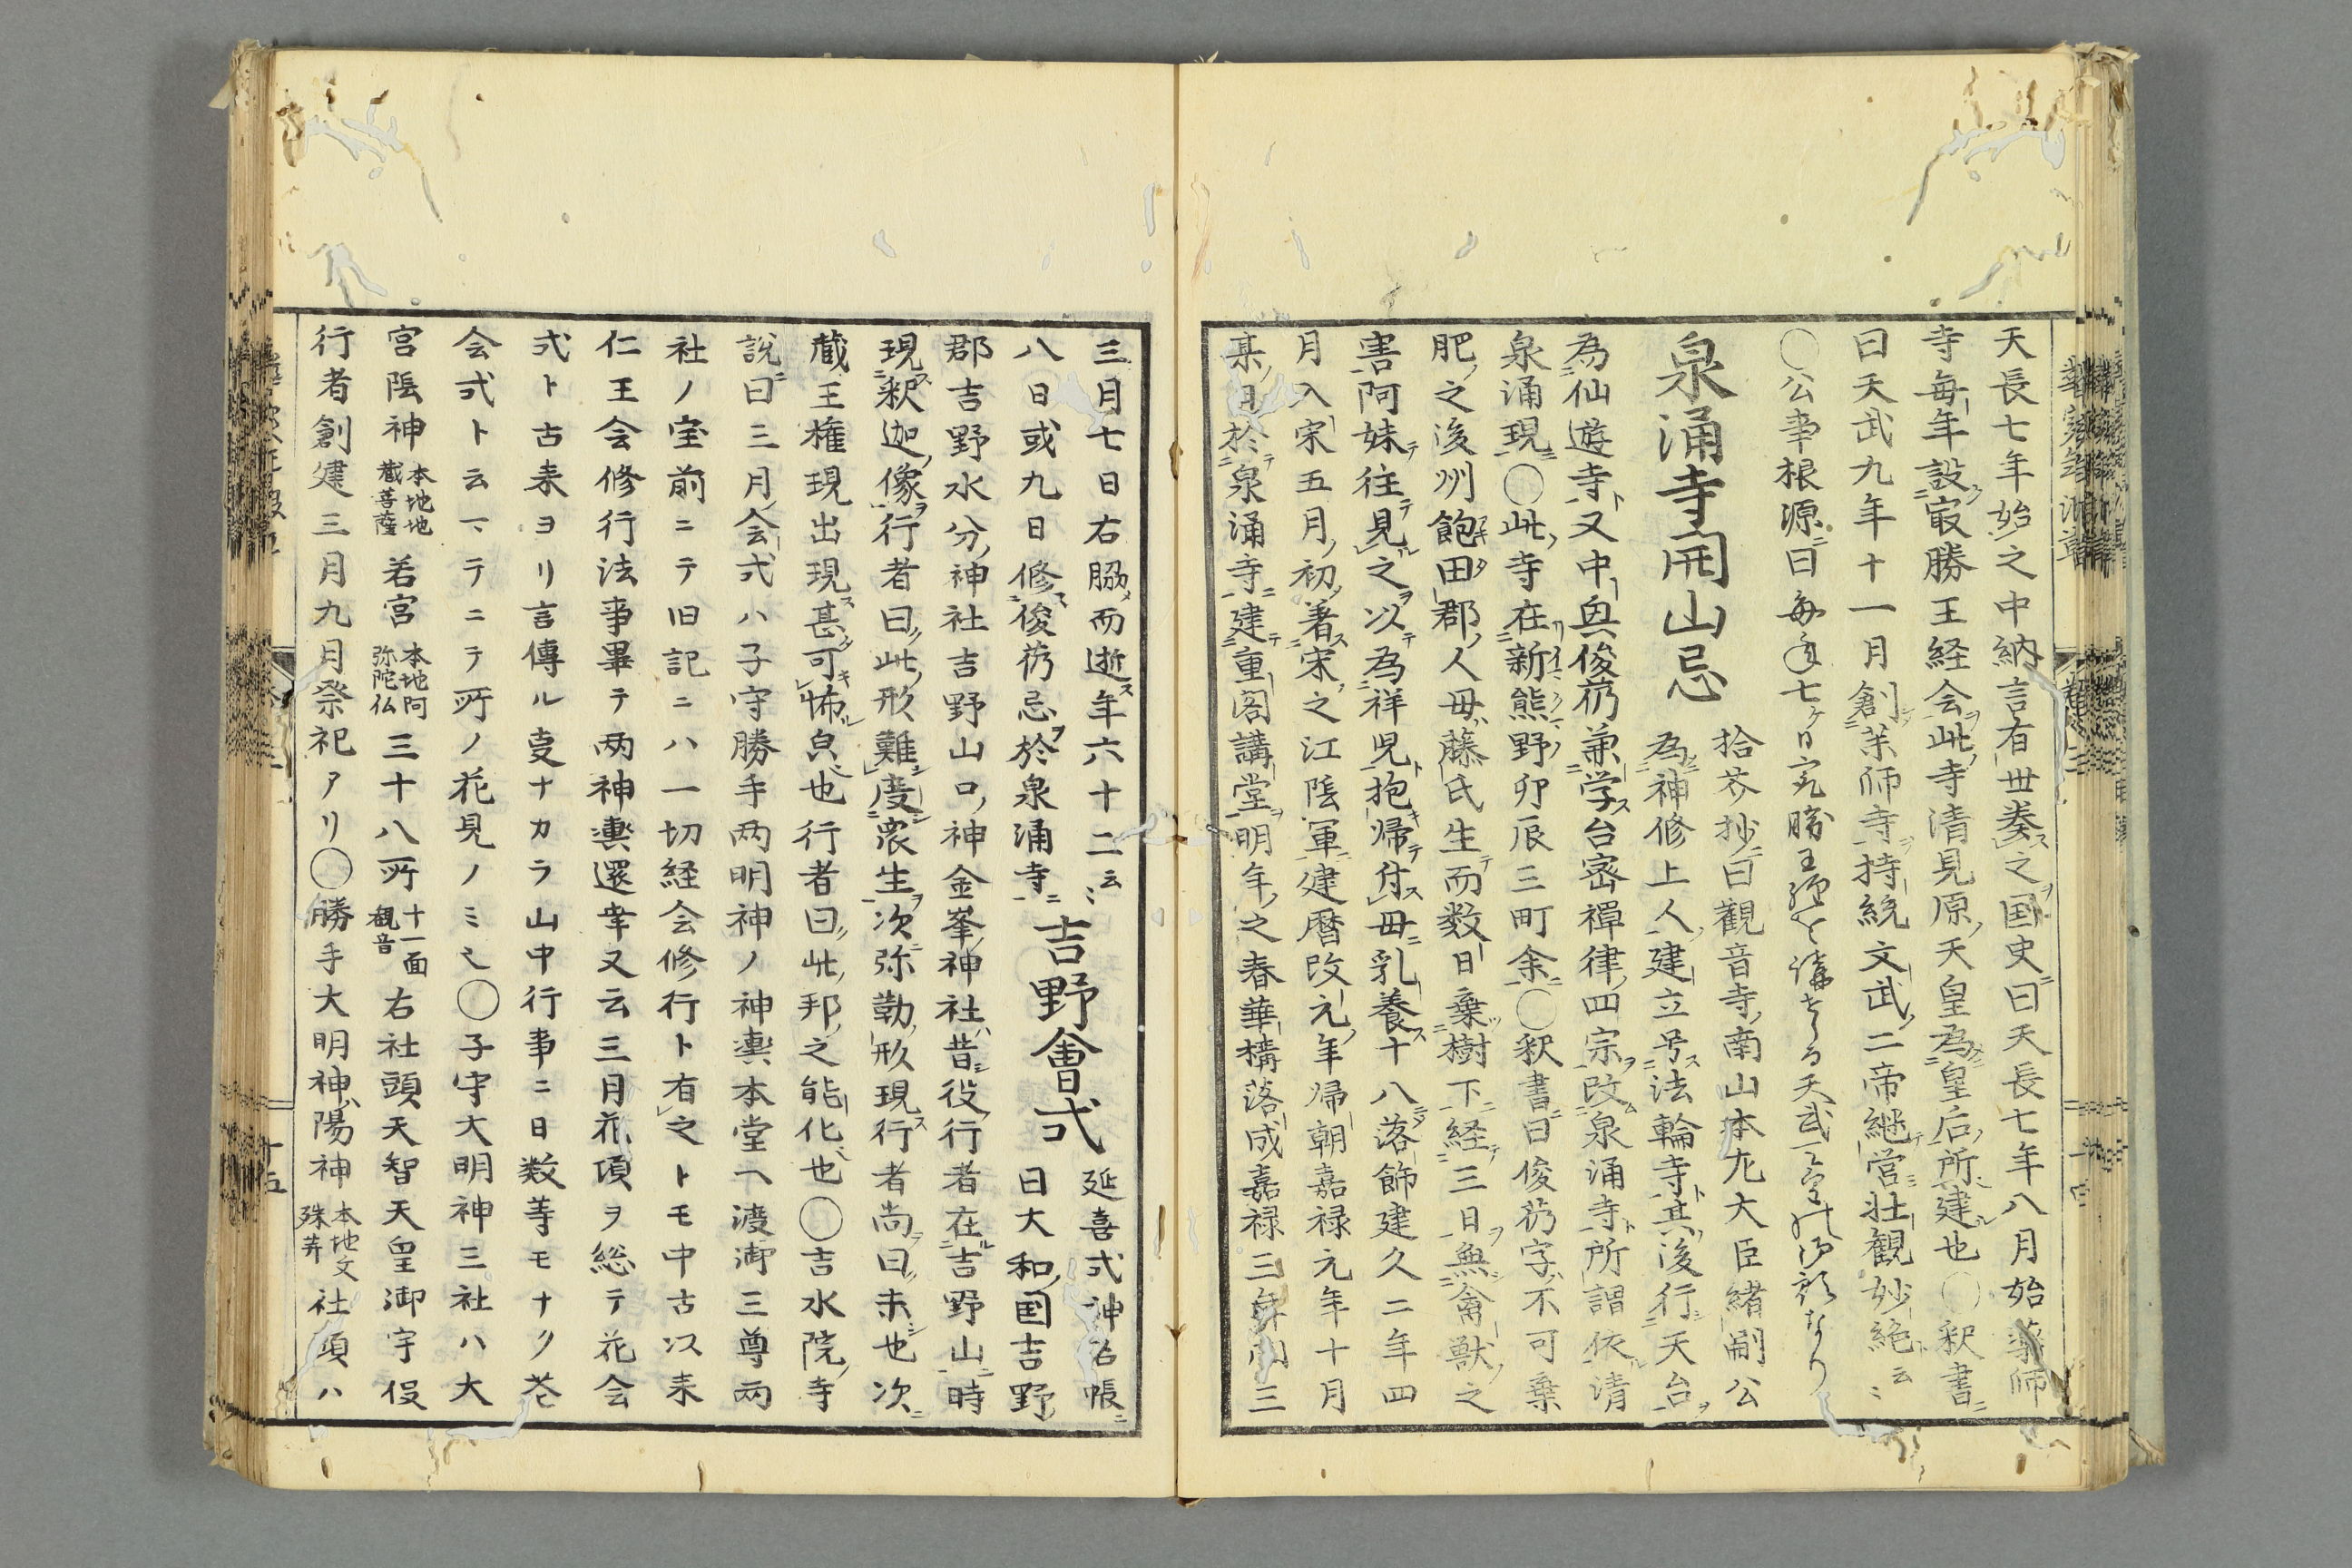 天長七年始之中納言有世奏之国史曰天長七年八月始薬師
寺毎年設最勝王経会此寺清見原天皇為皇后所建也〇釈書
曰天武九年十一月創薬師寺持統文武二帝継営壮観妙絶云〻
〇公事根源曰毎年七ケ日最勝王経を講
泉涌寺開山忌
拾芥抄曰観音寺南山本左大臣緒嗣公
為神修上人建立号法輪寺其後行天台
為仙遊寺又中興俊芿兼学台密禅律四宗改泉涌寺所謂依清
泉涌現〇此寺在新熊野卯辰三町余〇釈書曰俊芿字不可棄
肥之後州飽田郡人母藤氏生而数日棄樹下経三日無禽獣之
害阿妹往見之以為祥児抱帰付母乳養十八落飾建久二年四
月入宋五月初著宋之江陰軍建暦改元年帰朝嘉禄元年十月
某日於泉涌寺建重閣講堂明年之春華構落成嘉禄三年閏三
三月七日右脇而逝年六十二云〻
八日或九日修俊芿忌於泉涌寺
吉野會式
延喜式神名帳
曰大和国吉野
郡吉野水分神社吉野山口神金峯神社昔役行者在吉野山時
現釈迦像行者曰此形難度衆生次弥勒形現行者尚曰未也次
蔵王権現出現甚可怖㒵也行者曰此邦之能化也〇吉水院寺
説曰三月会式ハ子守勝手両明神ノ神輿本堂ヘ渡御三尊両
社ノ宝前ニテ旧記ニハ一切経会修行ト有之トモ中古以来
仁王会修行法事畢テ両神輿還幸又云三月花頃ヲ総テ花会
式ト古来ヨリ言傳ル叓ナカラ山中行事ニ日数等モナク花
会式ト云マテニテ所ノ花見ノミ也〇子守大明神三社ハ大
宮陰神本地地蔵菩薩若宮本地阿弥陀仏三十八所十一面観音右社頭天智天皇御宇役
行者創建三月九月祭祀アリ〇勝手大明神陽神本地文殊菩社頭ハ